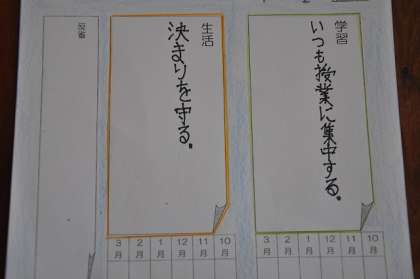 学習
いつも授業に集中する。
10月
11月
12月
1月
2月
3月
生活
決まりを守る。
10月
11月
12月
1月
2月
3月
反省